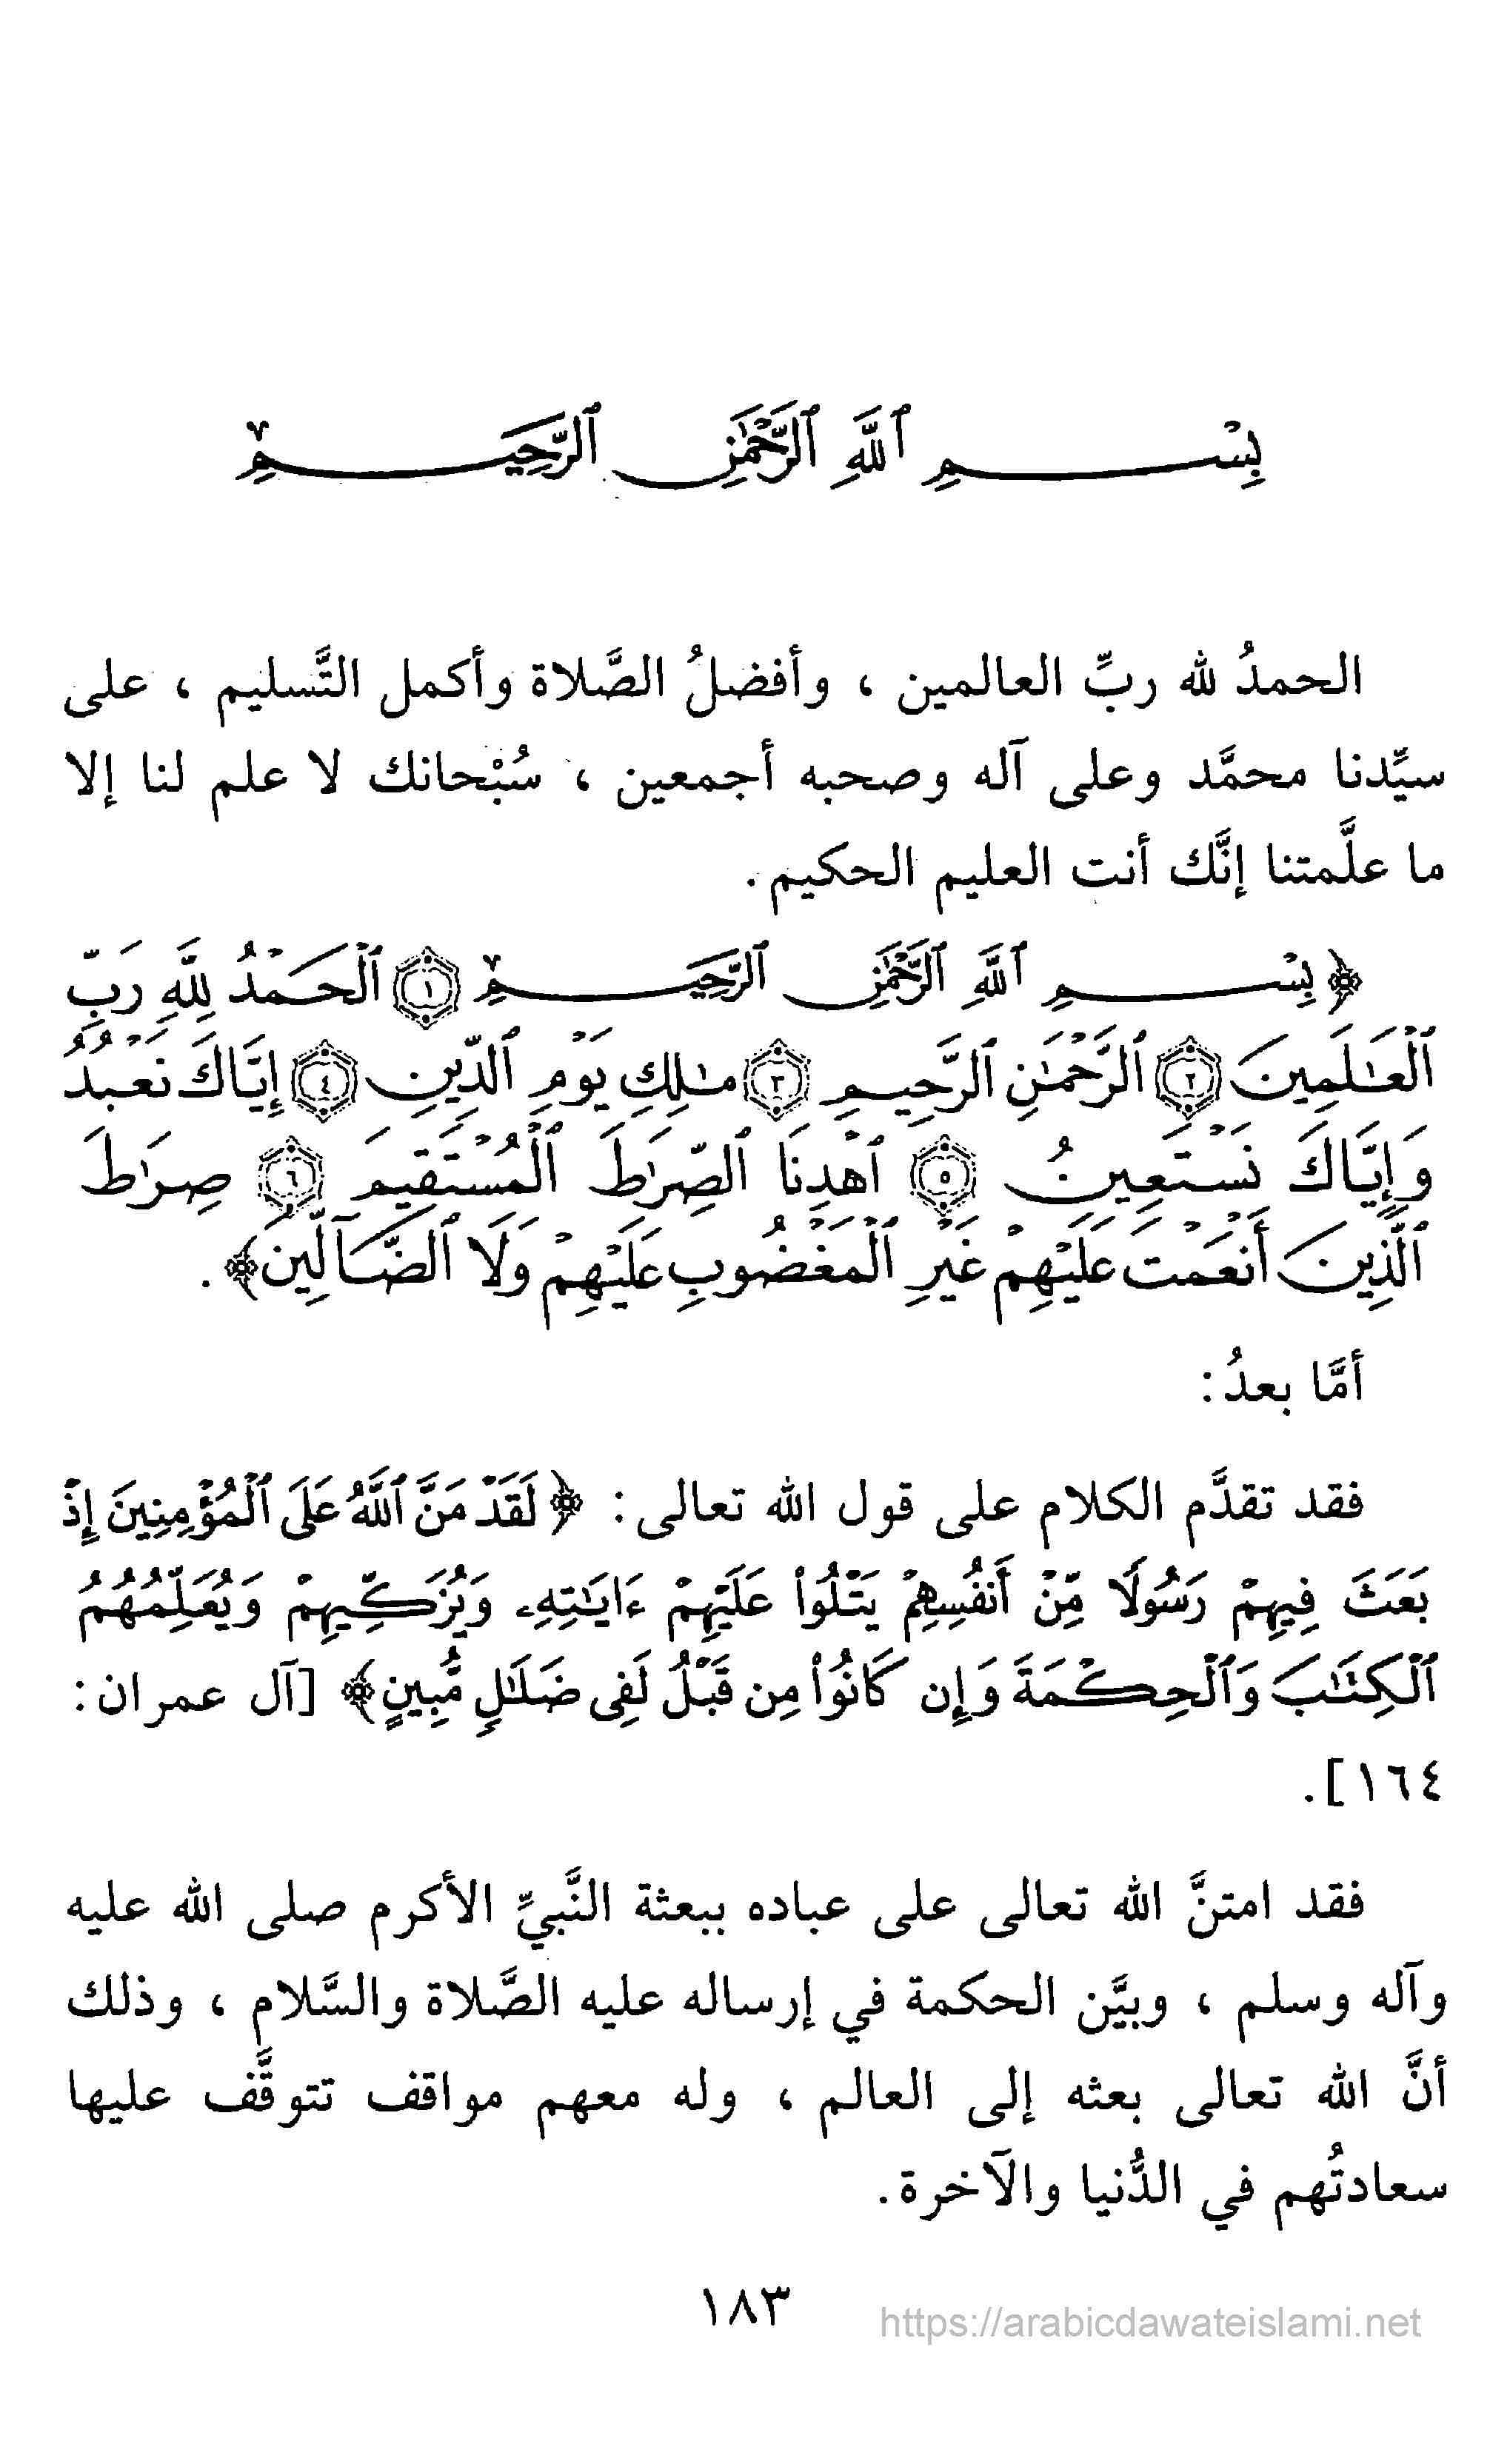 بِسْمِ ٱللَّهِ ٱلرَّحْمَٰنِ ٱلرَّحِيمِ
الحمدُ لله ربِّ العالمين ، وأفضلُ الصَّلاة وأكمل التَّسليم ، على
سيِّدنا محمَّد وعلى آله وصحبه أجمعين ، سُبْحانك لا علم لنا إلا
ما علَّمتنا إنَّك أنت العليم الحكيم .
﴿بِسْمِ ٱللَّهِ ٱلرَّحْمَٰنِ ٱلرَّحِيمِ ١ ٱلْحَمْدُ لِلَّهِ رَبِّ
ٱلْعَٰلَمِينَ ٢ ٱلرَّحْمَٰنِ ٱلرَّحِيمِ ٣ مَٰلِكِ يَوْمِ ٱلدِّينِ ٤ إِيَّاكَ نَعْبُدُ
وَإِيَّاكَ نَسْتَعِينُ ٥ ٱهْدِنَا ٱلصِّرَٰطَ ٱلْمُسْتَقِيمَ ٦ صِرَٰطَ
ٱلَّذِينَ أَنْعَمْتَ عَلَيْهِمْ غَيْرِ ٱلْمَغْضُوبِ عَلَيْهِمْ وَلَا ٱلضَّآلِّينَ﴾ .
أمَّا بعدُ :
فقد تقدَّم الكلام على قول الله تعالى : ﴿لَقَدْ مَنَّ ٱللَّهُ عَلَى ٱلْمُؤْمِنِينَ إِذْ
بَعَثَ فِيهِمْ رَسُولًا مِّنْ أَنفُسِهِمْ يَتْلُوا۟ عَلَيْهِمْ ءَايَٰتِهِۦ وَيُزَكِّيهِمْ وَيُعَلِّمُهُمُ
ٱلْكِتَٰبَ وَٱلْحِكْمَةَ وَإِن كَانُوا۟ مِن قَبْلُ لَفِى ضَلَٰلٍ مُّبِينٍ﴾ [آل عمران :
١٦٤] .
فقد امتنَّ الله تعالى على عباده ببعثة النَّبيِّ الأكرم صلى الله عليه
وآله وسلم ، وبيَّن الحكمة في إرساله عليه الصَّلاة والسَّلام ، وذلك
أنَّ الله تعالى بعثه إلى العالم ، وله معهم مواقف تتوقَّف عليها
سعادتُهم في الدُّنيا والآخرة .
١٨٣
https://arabicdawateislami.net